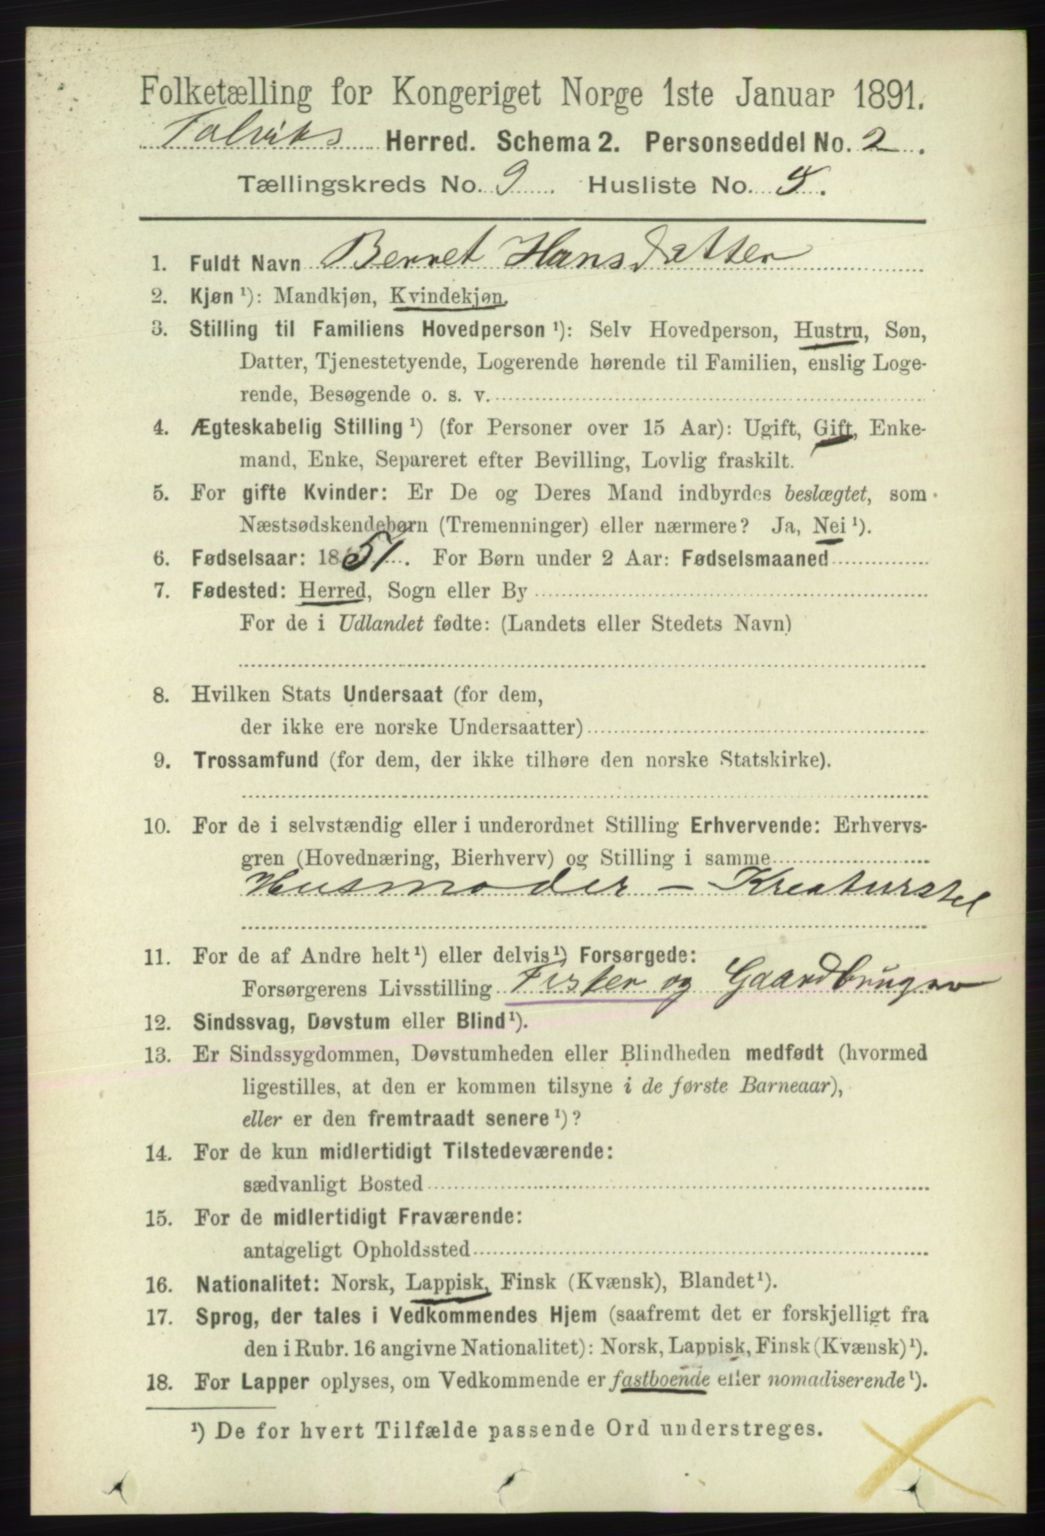 Folketælling for Kongeriget Norge 1ste Januar 1891.
Talviks Herred. Schema 2. Personseddel No. 2.
Tællingskreds No. 9. Husliste No. 5.
1. Fuldt Navn Berret Hansdatter
2. Kjøn ¹): Mandkjøn, Kvindekjøn.
3. Stilling til Familiens Hovedperson ¹): Selv Hovedperson, Hustru, Søn,
Datter, Tjenestetyende, Logerende hørende til Familien, enslig Loge-
rende, Besøgende o. s. v.
4. Ægteskabelig Stilling ¹) (for Personer over 15 Aar): Ugift, Gift, Enke-
mand, Enke, Separeret efter Bevilling, Lovlig fraskilt.
5. For gifte Kvinder: Er De og Deres Mand indbyrdes beslægtet, som
Næstsødskendebørn (Tremenninger) eller nærmere? Ja, Nei ¹).
6. Fødselsaar: 1851. For Børn under 2 Aar: Fødselsmaaned
7. Fødested: Herred, Sogn eller By
For de i Udlandet fødte: (Landets eller Stedets Navn)
8. Hvilken Stats Undersaat (for dem,
der ikke ere norske Undersaatter)
9. Trossamfund (for dem, der ikke tilhøre den norske Statskirke).
10. For de i selvstændig eller i underordnet Stilling Erhvervende: Erhvervs-
gren (Hovednæring, Bierhverv) og Stilling i samme
Husmoder – Kreaturstel
11. For de af Andre helt ¹) eller delvis ¹) Forsørgede:
Forsørgerens Livsstilling Fisker og Gaardbruger
12. Sindssvag, Døvstum eller Blind ¹).
13. Er Sindssygdommen, Døvstumheden eller Blindheden medfødt (hvormed
ligestilles, at den er kommen tilsyne i de første Barneaar),
eller er den fremtraadt senere ¹)?
14. For de kun midlertidigt Tilstedeværende:
sædvanligt Bosted
15. For de midlertidigt Fraværende:
antageligt Opholdssted
16. Nationalitet: Norsk, Lappisk, Finsk (Kvænsk), Blandet ¹).
17. Sprog, der tales i Vedkommendes Hjem (saafremt det er forskjelligt fra
den i Rubr. 16 angivne Nationalitet): Norsk, Lappisk, Finsk (Kvænsk) ¹).
18. For Lapper oplyses, om Vedkommende er fastboende eller nomadiserende ¹).
¹) De for hvert Tilfælde passende Ord understreges.